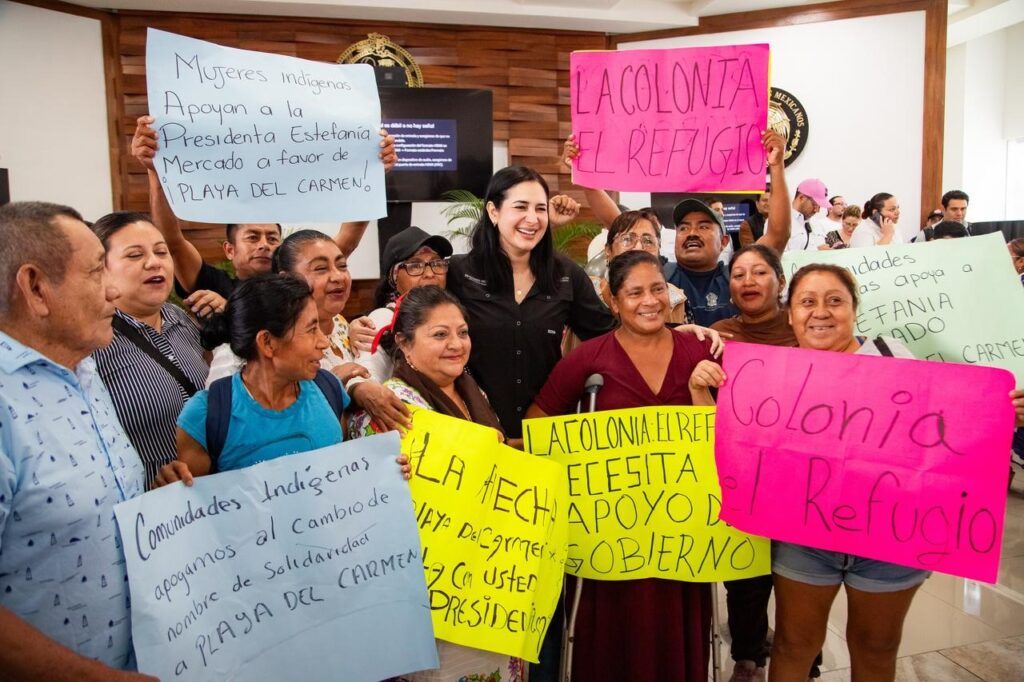 Mujeres indígenas
Apoyan a la
Presidenta Estefanía
Mercado a favor de
¡PLAYA DEL CARMEN!
LA COLONIA
EL REFUGIO
MEXICANOS
Comunidades
apoya a
CARMEN
Comunidades Indígenas
apogamos al Cambio de
nombre de Solidaridad
a PLAYA DEL CARMEN
PLAYA DEL Carmen
Con USTED
PRESIDEN
LA COLONIA EL REF
ECESITA
APOYO D
GOBIERNO
Colonia
el Refugio